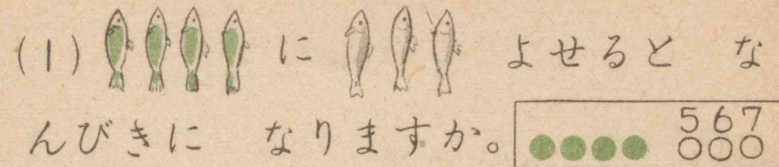 (1) に よせると な
んびきに なりますか。
5 6 7